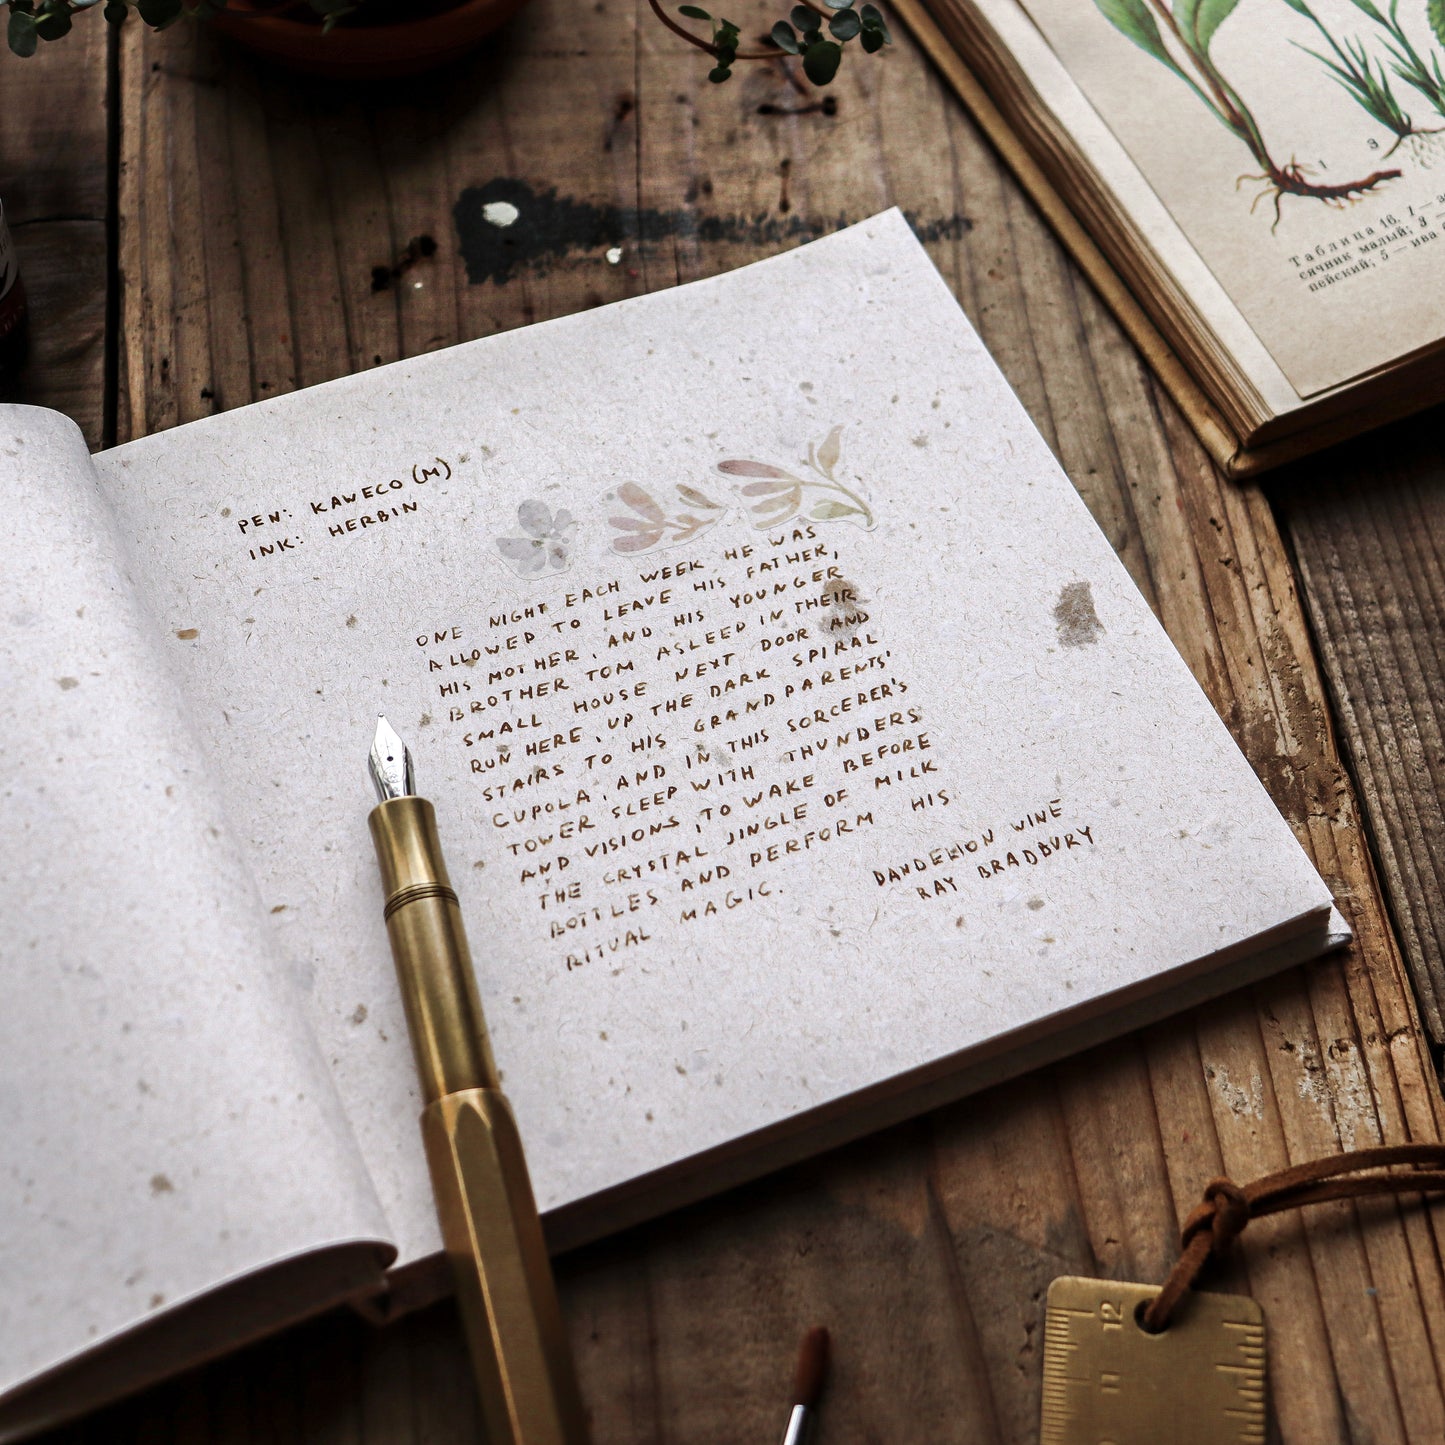 PEN: KAWECO (M)
INK: HERBIN
ONE NIGHT EACH WEEK HE WAS
ALLOWED TO LEAVE HIS FATHER,
HIS MOTHER, AND HIS YOUNGER
BROTHER TOM ASLEEP IN THEIR
SMALL HOUSE NEXT DOOR AND
RUN HERE, UP THE DARK SPIRAL
STAIRS TO HIS GRANDPARENTS'
CUPOLA, AND IN THIS SORCERER'S
TOWER SLEEP WITH THUNDERS
AND VISIONS, TO WAKE BEFORE
THE CRYSTAL JINGLE OF MILK
BOTTLES AND PERFORM HIS
RITUAL MAGIC.
DANDELION WINE
RAY BRADBURY
1 3
Таблица 16. 1 —
сячник малый; 3 —
пейский; 5 — ива
12
11